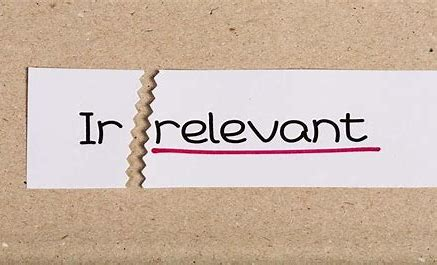 Ir relevant